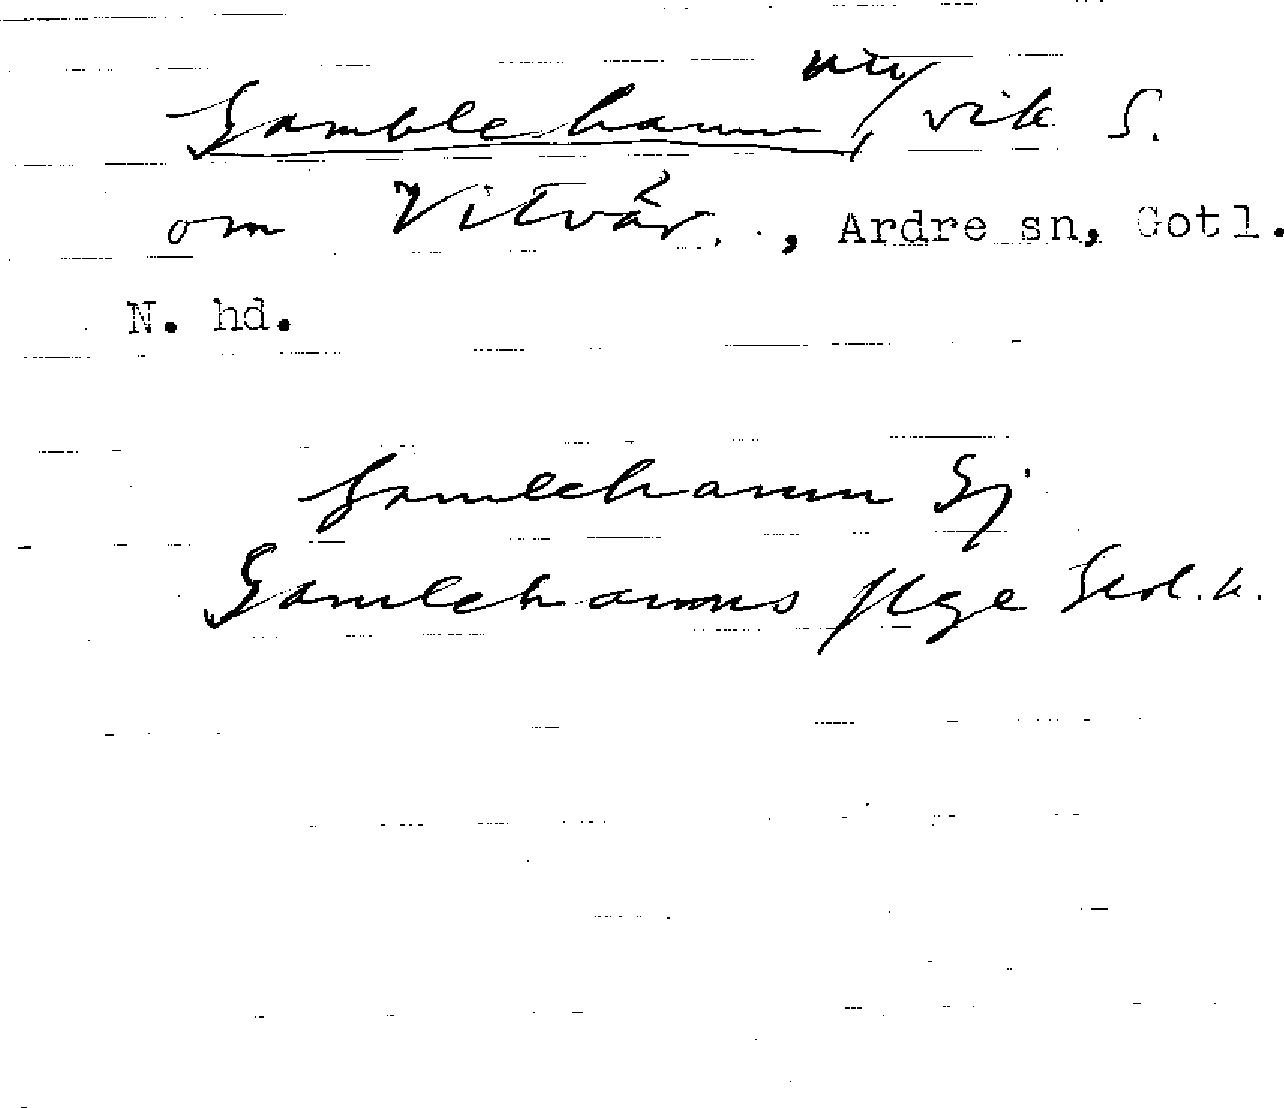 Gamblehamn, vik S.
om Vitvär, Ardre sn, Gotl.
N. hd.
Gamlehamn Ej
Gamlehamns flge Geol. k.